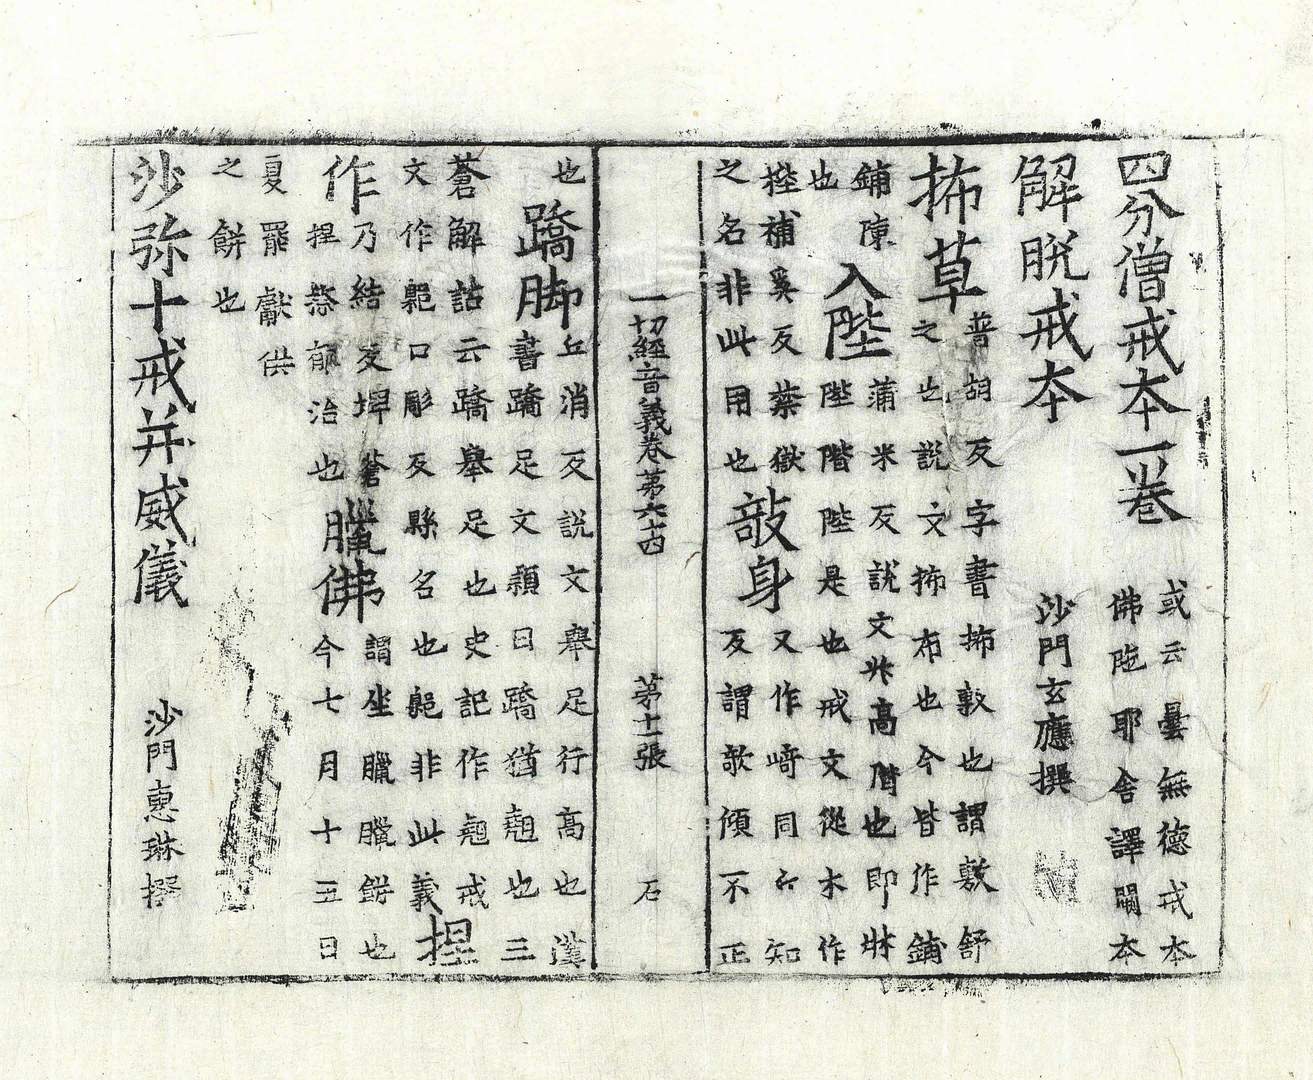 四分僧戒本一卷 或云曇無德戒本
佛陁耶舍譯闕本
解脫戒本 沙門玄應撰
抪草 普胡反字書抪敷也謂敷舒
之也說文抪布也今皆作鋪
鋪陳 入陛 蒲米反說文升高階也即牀
也 陛階陛是也戒文從木作
㮰補奚反葉獄 又作崎同六知
之名非此用也 敧身 反謂欹傾不正
一切經音義卷第六十四 第十一張 石
也 蹻脚 丘消反說文舉足行高也漢
書蹻足文穎曰蹻猶翹也三
蒼解詁云蹻舉足也史記作翹戒
文作䫥口彫反縣名也䫥非此義 捏
作 乃結反埤蒼
捏㨼䈰治也 臘佛 謂坐臘臘餅也
今七月十五日
夏罷獻供
之餅也
沙弥十戒并威儀 沙門惠琳撰